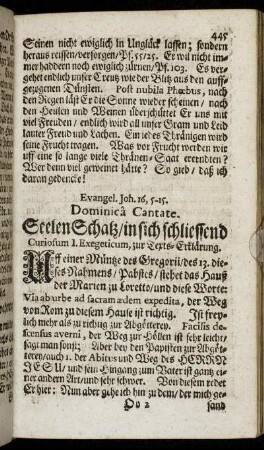 445
Seinen nicht ewiglich in Unglück lassen; sondern
heraus reissen/versorgen/Ps. 55/25. Er wil nicht im-
mer haddern noch ewiglich zürnen/Ps. 103. Es ver-
gehet endlich unser Creutz wie der Blitz aus den auff-
gezogenen Dünsten. Post nubila Phœbus, nach
den Regen läst Er die Sonne wieder scheinen/ nach
den Heulen und Weinen überschüttet Er uns mit
viel Freuden/ endlich wird all unser Gram und Leid
lauter Freud und Lachen. Ein iedes Thränigen wird
seine Frucht tragen. Was vor Frucht werden wir
uff eine so lange viele Thränen-Saat erendten?
Wer denn viel geweinet hätte? So gieb/ daß ich
daran gedencke!
Evangel. Joh. 16, 5-15.
Dominicâ Cantate.
Seelen Schatz/in sich schliessend
Curiosum I. Exegeticum, zur Texts-Erklärung.
Uff einer Müntze des Gregorii/des 13. die-
ses Nahmens/ Pabstes/ stehet das Hauß
der Marien zu Loretto/und diese Worte:
Via aburbe ad sacram ædem expedita, der Weg
von Rom zu diesem Hause ist richtig. Ist frey-
lich mehr als zu richtig zur Abgötterey. Facilis de-
scensus averni, der Weg zur Höllen ist sehr leicht/
sagt man sonst; Aber bey den Papisten zur Abgöt-
terey/auch 1. der Abitus und Weg des HERRN
JESU/ und sein Hingang zum Vater ist gantz ei-
ner andern Art/und sehr schwer. Von diesem redet
Er hier: Nun aber gehe ich hin zu dem/ der mich ge-
Oo 2 sand